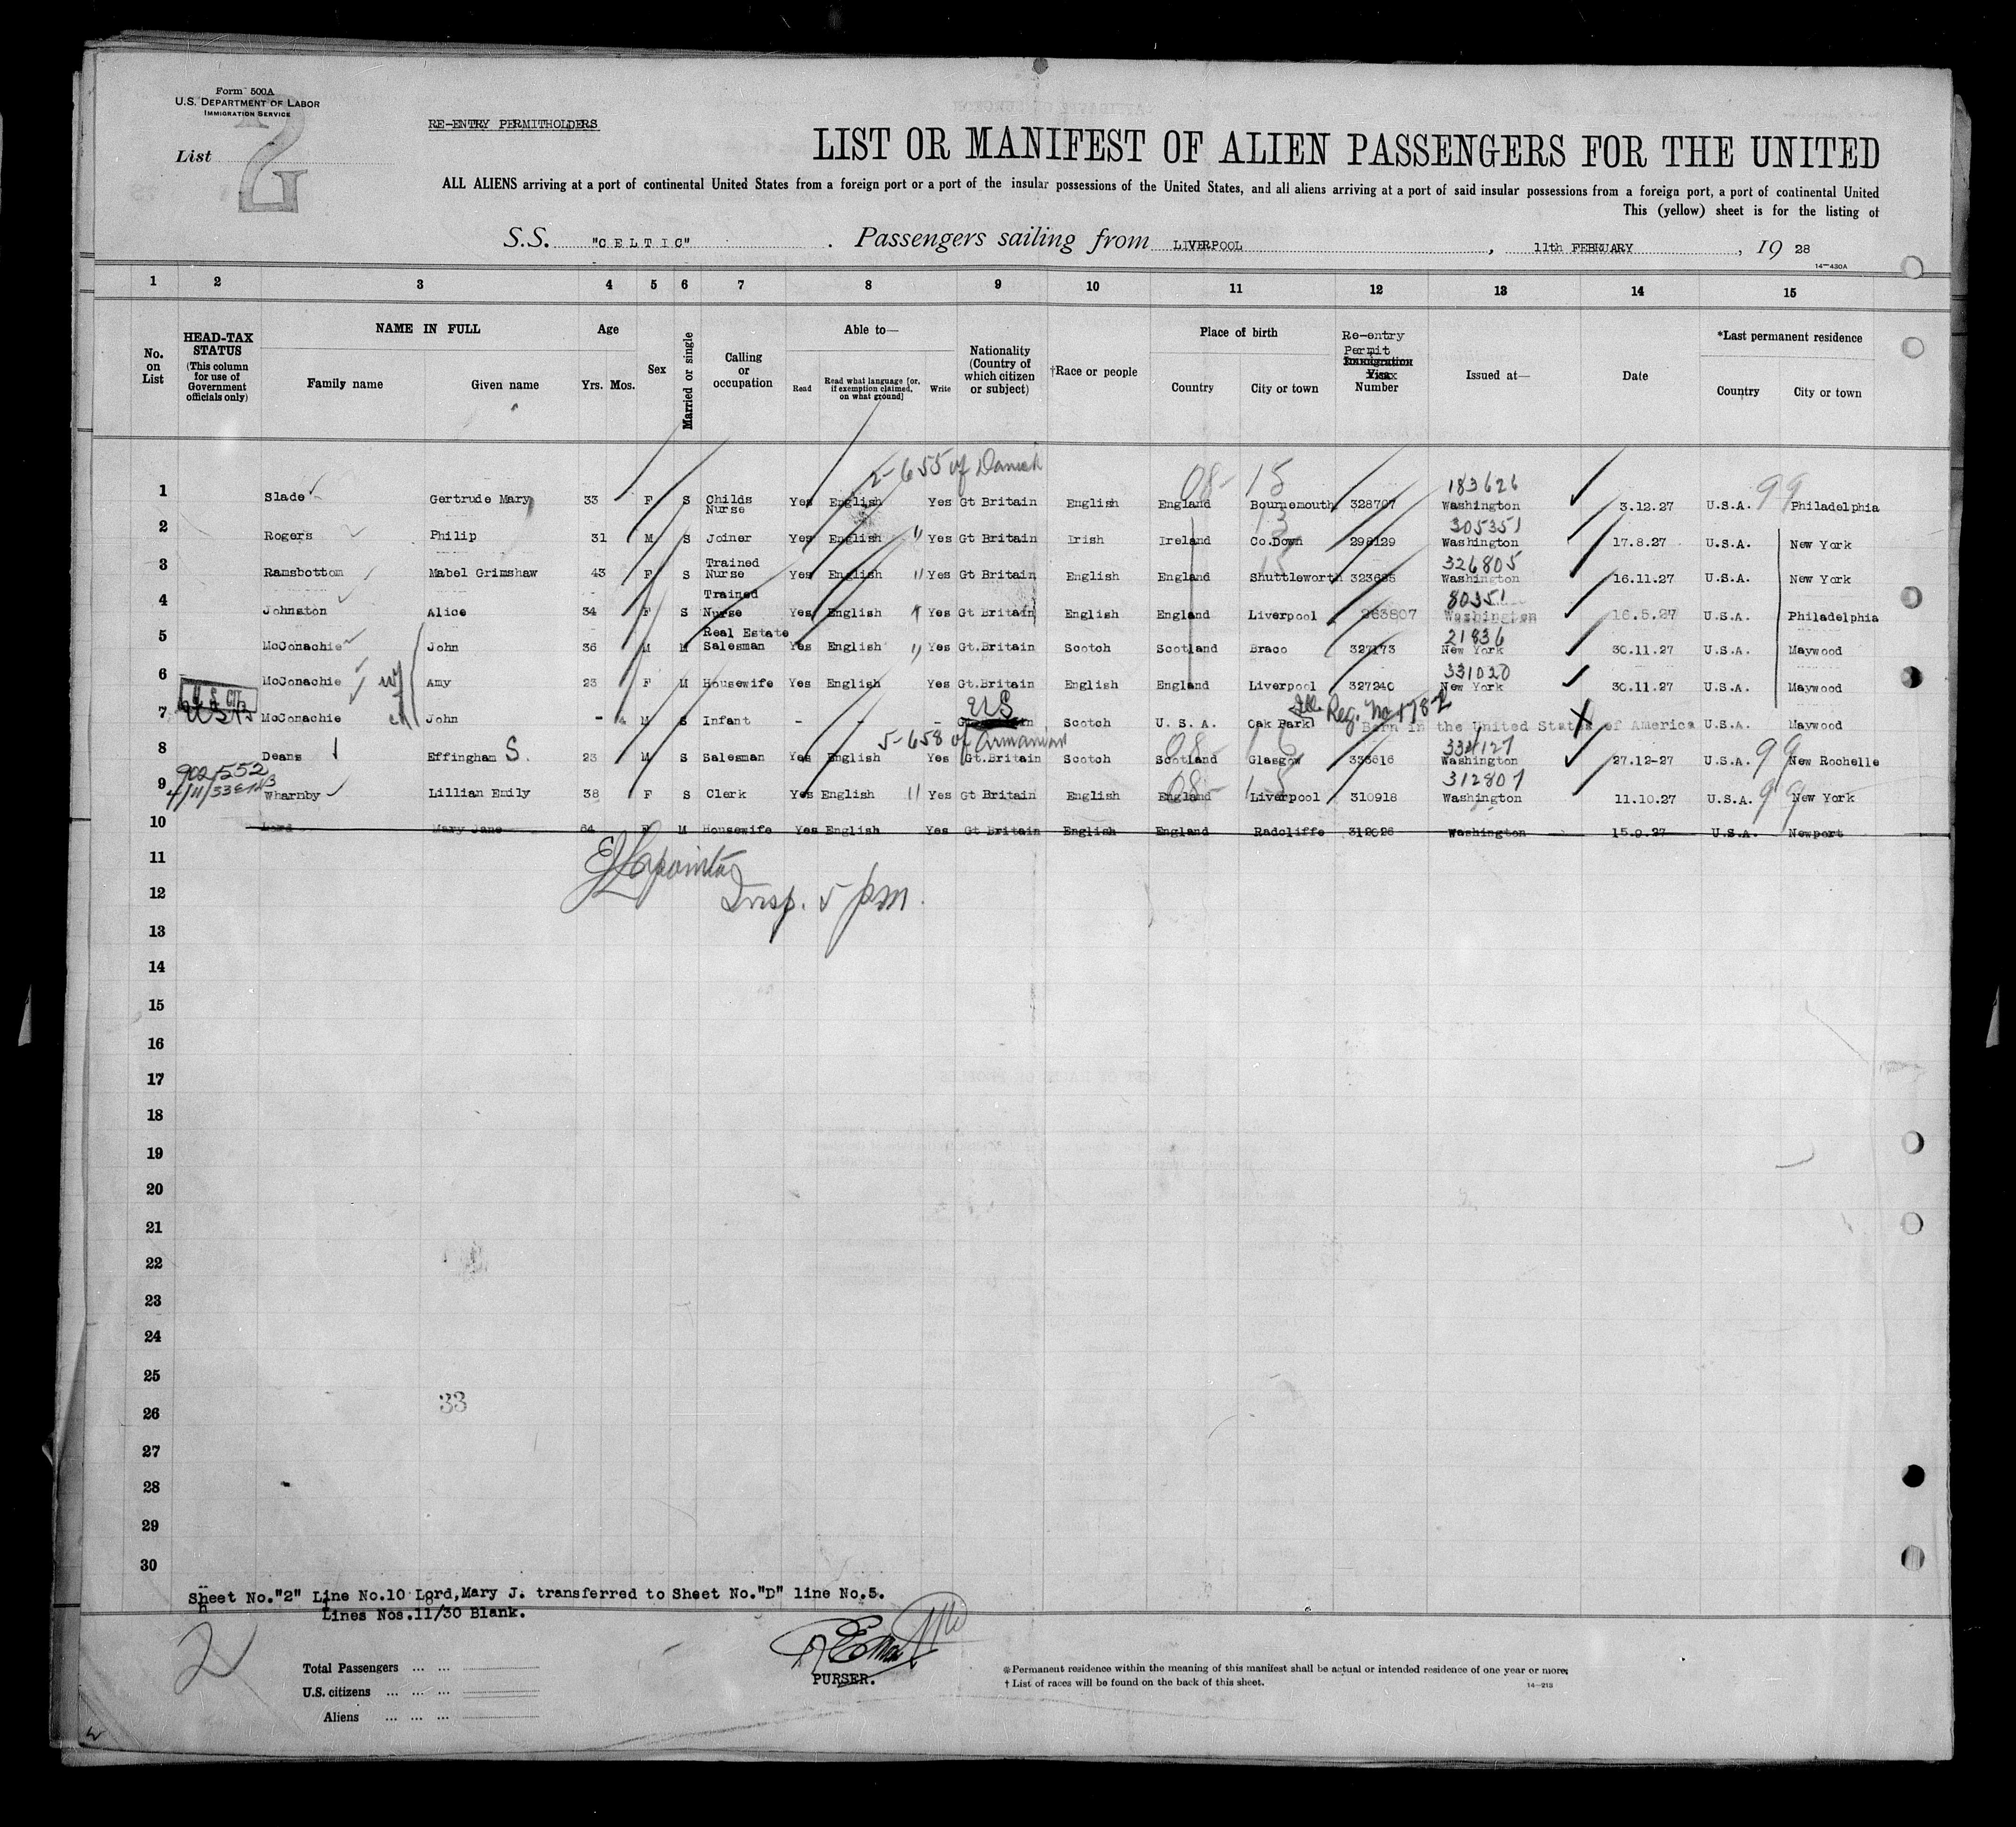 Form 500A
U.S. DEPARTMENT OF LABOR
IMMIGRATION SERVICE
List 2
RE-ENTRY PERMITHOLDERS
LIST OR MANIFEST OF ALIEN PASSENGERS FOR THE UNITED
ALL ALIENS arriving at a port of continental United States from a foreign port or a port of the insular possessions of the United States, and all aliens arriving at a port of said insular possessions from a foreign port, a port of continental United
This (yellow) sheet is for the listing of
S.S. "CELTIC" . Passengers sailing from LIVERPOOL , 11th FEBRUARY , 19 28
14-430A
1 2 3 4 5 6 7 8 9 10 11 12 13 14 15
No. on List
HEAD-TAX STATUS (This column for use of Government officials only)
NAME IN FULL
Family name Given name
Age
Yrs. Mos.
Sex
Married or single
Calling or occupation
Able to—
Read Read what language [or, if exemption claimed, on what ground] Write
Nationality (Country of which citizen or subject)
†Race or people
Place of birth
Country City or town
Re-entry Permit Immigration Visa Number
Issued at—
Date
*Last permanent residence
Country City or town
2-655 of Danish
08- 15 183626 99
1 Slade Gertrude Mary 33 F S Childs Nurse Yes English Yes Gt Britain English England Bournemouth 328707 Washington 3.12.27 U.S.A. Philadelphia
13 305351
2 Rogers Philip 31 M S Joiner Yes English " Yes Gt Britain Irish Ireland Co.Down 298129 Washington 17.8.27 U.S.A. New York
15 326805
3 Ramsbottom Mabel Grimshaw 43 F S Trained Nurse Yes English " Yes Gt Britain English England Shuttleworth 323685 Washington 16.11.27 U.S.A. New York
80351
4 Johnston Alice 34 F S Trained Nurse Yes English " Yes Gt Britain English England Liverpool 263807 Washington 16.5.27 U.S.A. Philadelphia
21836
5 McConachie John 36 M M Real Estate Salesman Yes English " Yes Gt.Britain Scotch Scotland Braco 327173 New York 30.11.27 U.S.A. Maywood
331020
6 McConachie wf Amy 23 F M Housewife Yes English Yes Gt.Britain English England Liverpool 327240 New York 30.11.27 U.S.A. Maywood
U.S. CIT.
US Ill. Reg. No 1782
7 McConachie ch John - 4 M S Infant - - - Gt.Britain Scotch U. S. A. Oak Park Born in the United States of America U.S.A. Maywood
5-658 of Armanian
08- 16 334127 99
8 Deans Effingham S. 23 M S Salesman Yes English Yes Gt.Britain Scotch Scotland Glasgow 333616 Washington 27.12-27 U.S.A. New Rochelle
902552
08- 15 312807 99
9 Wharnby Lillian Emily 38 F S Clerk Yes English " Yes Gt Britain English England Liverpool 310918 Washington 11.10.27 U.S.A. New York
10 Lord Mary Jane 64 F M Housewife Yes English Yes Gt Britain English England Radcliffe 312026 Washington 15.9.27 U.S.A. Newport
11
12
Insp. 5 pm.
13
14
15
16
17
18
19
20
21
22
23
24
25
26
33
27
28
29
30
Sheet No."2" Line No.10 Lord,Mary J. transferred to Sheet No."D" line No.5.
Lines Nos.11/30 Blank.
2
Total Passengers ... ...
U.S. citizens ... ... ...
Aliens ... ... ...
PURSER.
*Permanent residence within the meaning of this manifest shall be actual or intended residence of one year or more.
† List of races will be found on the back of this sheet.
14-213